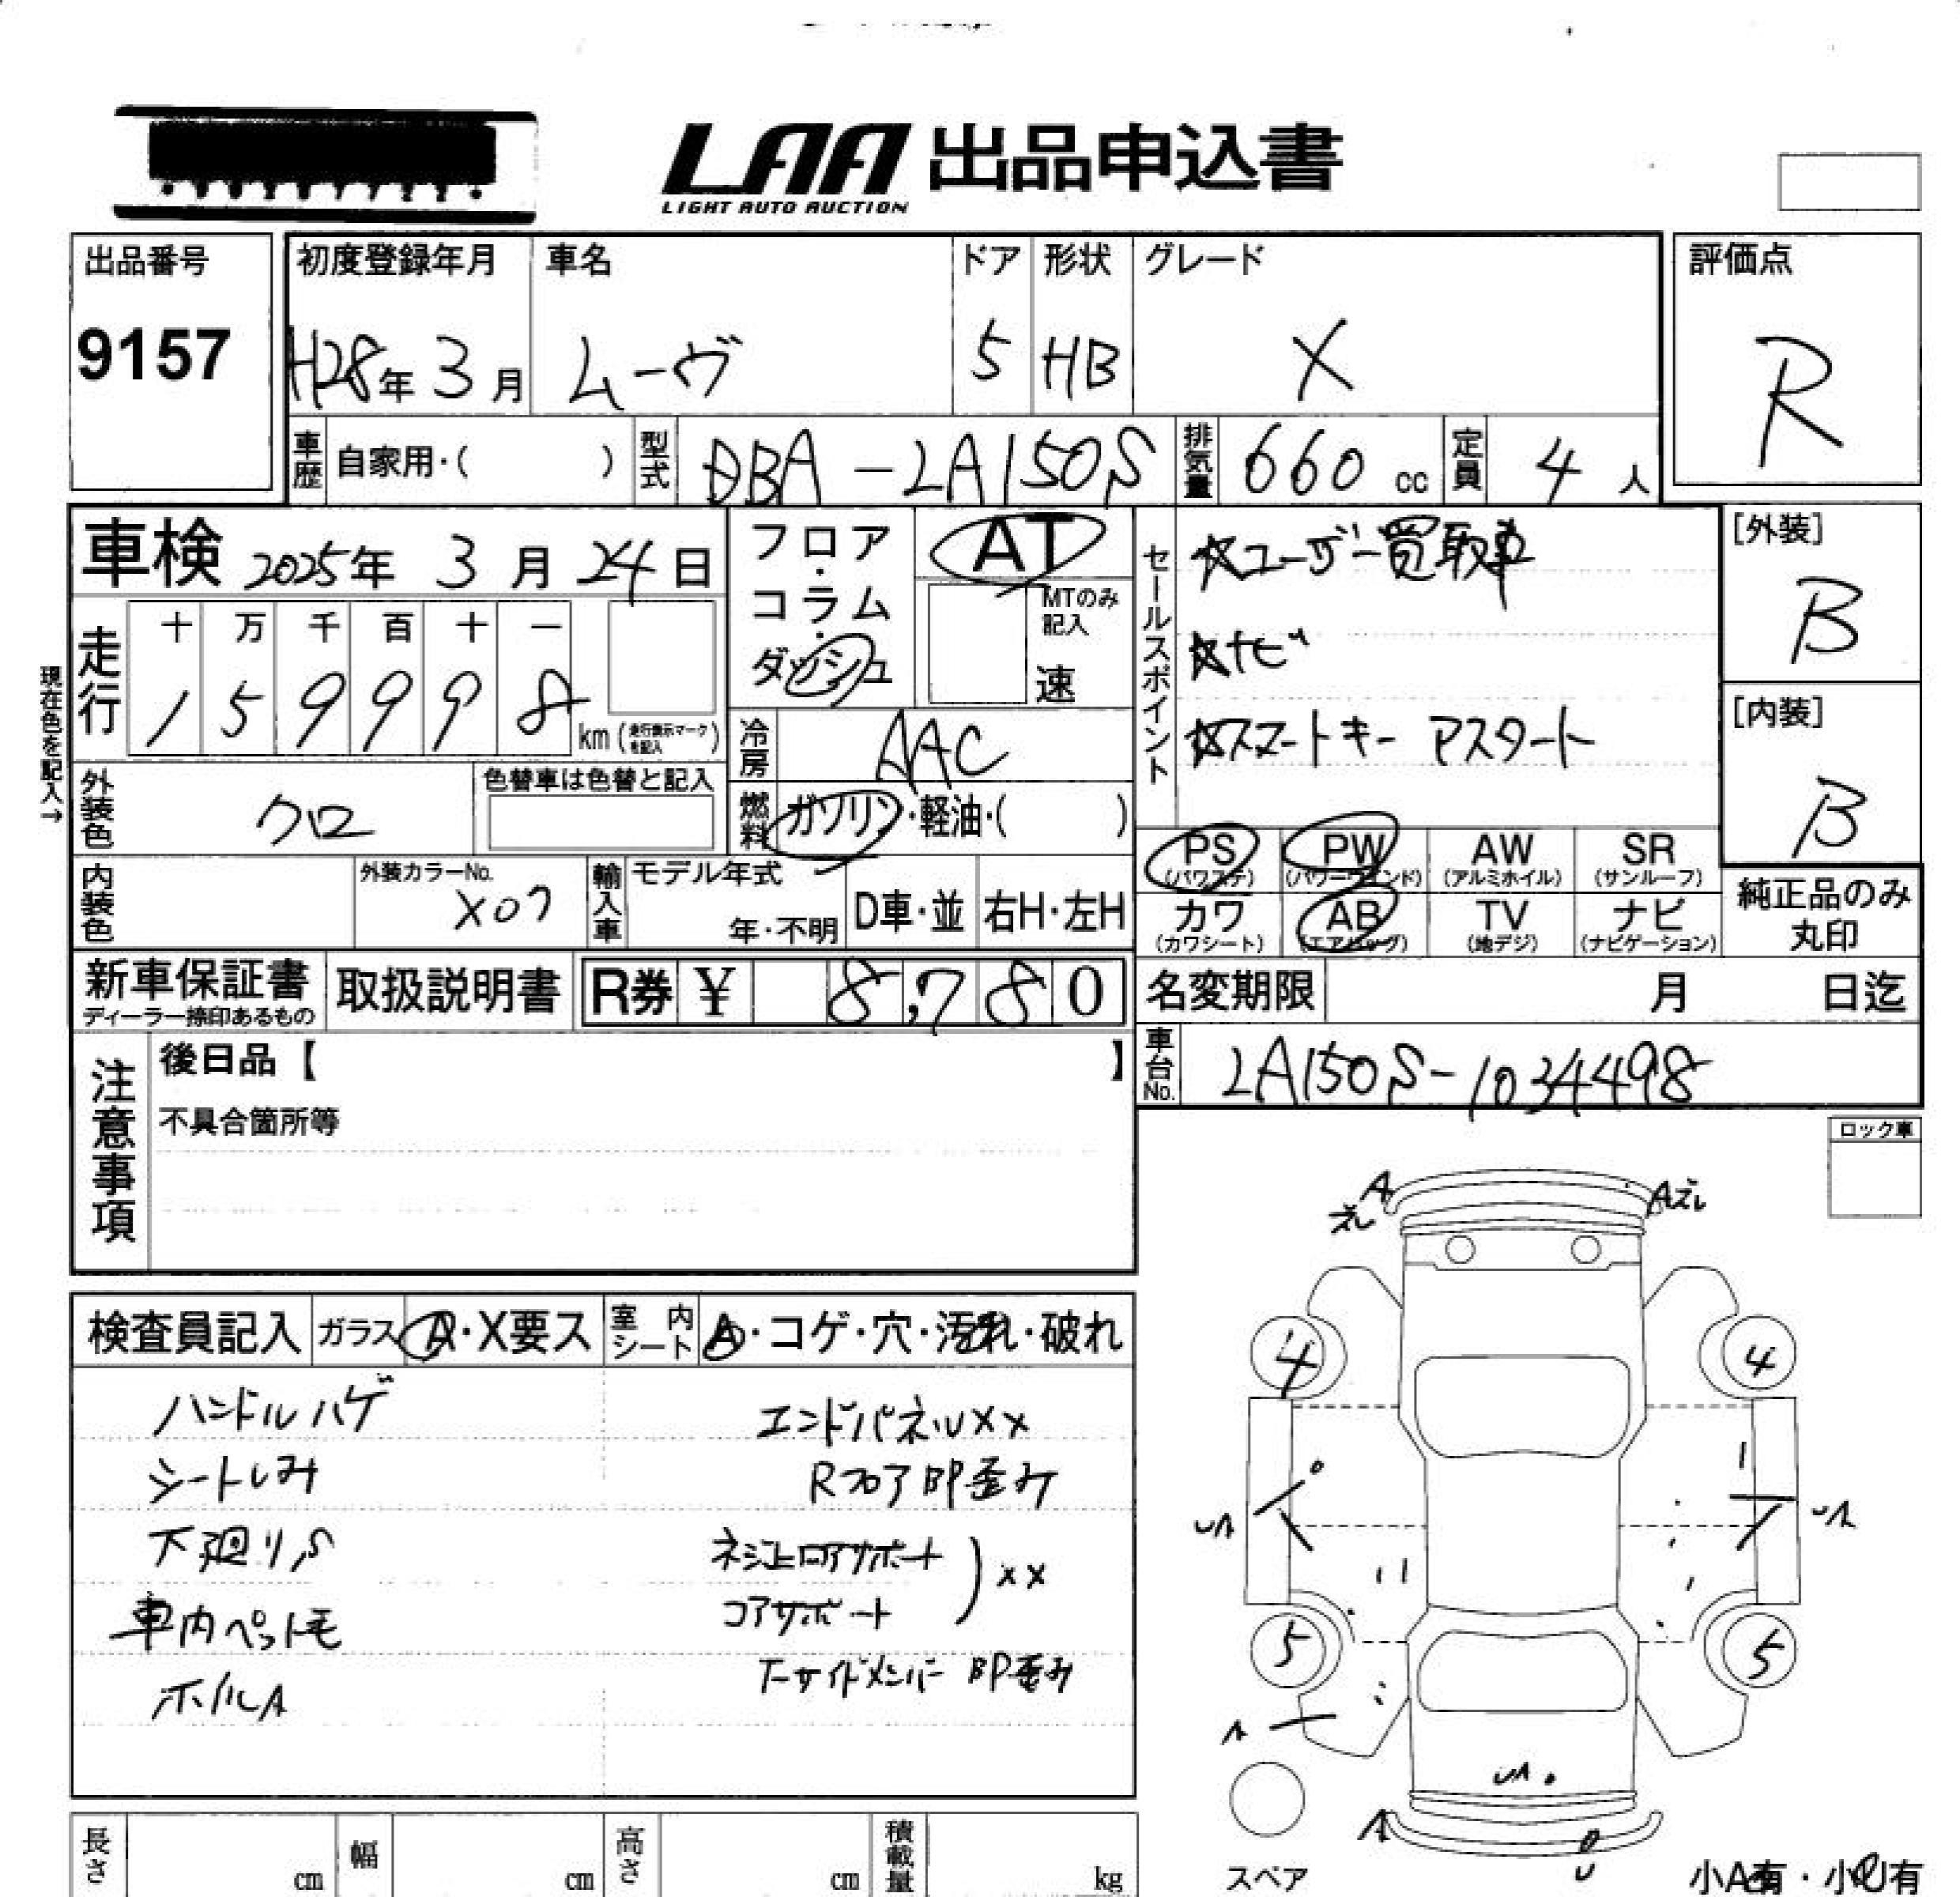 LAA 出品申込書
LIGHT AUTO AUCTION
出品番号
9157
初度登録年月 車名 ドア 形状 グレード
H28年 3月 ムーヴ 5 HB X
評価点
R
車歴 自家用・( ) 型式 DBA-LA150S 排気量 660 cc 定員 4 人
車検 2025年 3月 24日
フロア・コラム・ダッシュ
AT
MTのみ記入
速
セールスポイント
☆ユーザー買取車
☆ナビ
☆スマートキー アスタート
[外装]
B
[内装]
B
現在色を記入→
走行 十 万 千 百 十 一
1 5 9 9 9 8 km (走行表示マークを記入)
冷房 AAC
外装色 クロ 色替車は色替と記入
燃料 ガソリン・軽油・( )
PS (パワステ) PW (パワーウインド) AW (アルミホイル) SR (サンルーフ)
カワ (カワシート) AB (エアバッグ) TV (地デジ) ナビ (ナビゲーション)
純正品のみ丸印
内装色 外装カラーNo. X07 輸入車 モデル年式 年・不明 D車・並 右H・左H
新車保証書 ディーラー捺印あるもの 取扱説明書 R券 ¥ 8,780
名変期限 月 日迄
車台No. LA150S-1034498
注意事項
後日品【 】
不具合箇所等
ロック車
検査員記入 ガラス A・X要ス 室内シート A・コゲ・穴・汚れ・破れ
ハンドルハゲ
シートしみ
下廻りS
車内ペット毛
ホイルA
エンドパネルXX
Rフロア凹歪み
コアサポート
XX
A ズレ
A ズレ
4 4
UA
UA
5 5
A
UA
A
U
スペア
小A有・小U有
長さ cm 幅 cm 高さ cm 積載量 kg